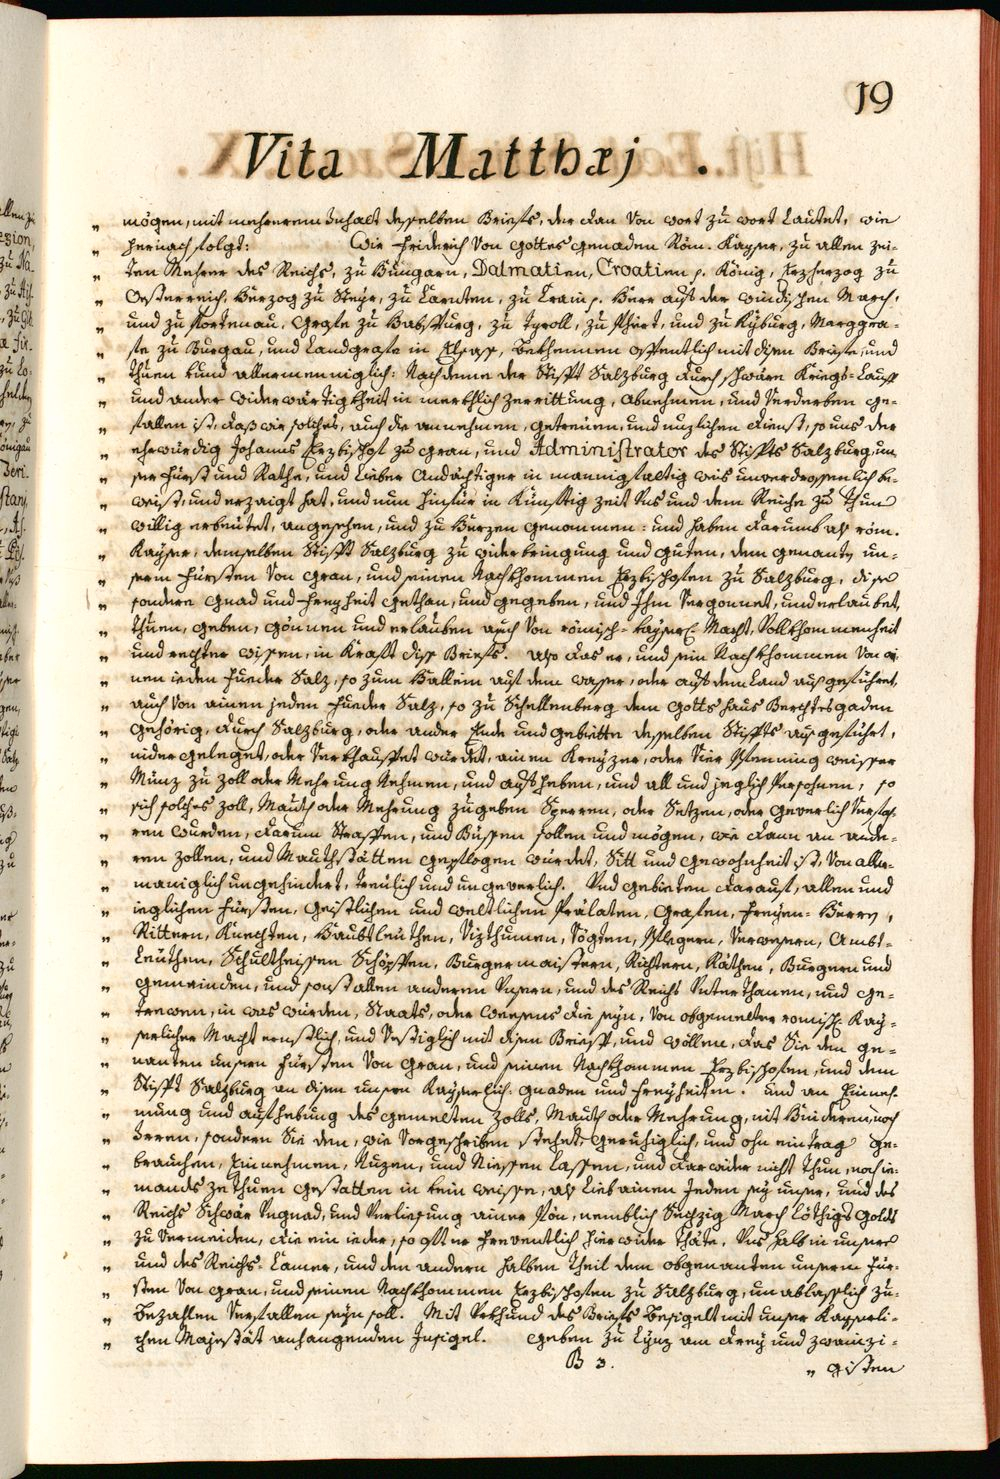 19
Vita Matthæj .
„ mögen, mit mehrerem Inhalt desselben Briefs, der dan Von wort zu wort Lautet, wie
„ hernach folgt: Wir Friderich Von Gottes genaden Röm. Kayser, zu allen zei-
„ ten Mehrer des Reichs, zu Hungarn, Dalmatien, Croatien p. König, Erzherzog zu
„ Oesterreich, Herzog zu Steyr, zu Kärnten, zu Crain p. Herr auf der windischen March,
„ und zu Portenau, Grafe zu Habspurg, zu Tyroll, zu Phirt, und zu Kyburg, Marggra-
„ fe zu Burgau, und Landgrafe in Elsass, Bekhennen offentlich mit disen Briefe, und
„ thuen kund allermenniglich: Nachdeme der Stifft Salzburg durch schwäre Kriegs-Lauff
„ und ander widerwärtigkheit in merkhlich zerrittung, abnehmen, und Verderben ge-
„ fallen ist, daß wir solches, auch die annehmen, getreuen, und nuzlichen dienst, so uns der
„ ehrwürdig Johanns Erzbischof zu Gran, und Administrator des Stiffts Salzburg, un
„ ser Fürst und Rathe, und Lieber Andächtiger in mannigfaltig weis unverdrossenlich be-
„ weist, und erzaigt hat, und nun hinfür in Künfftig zeit Uns und dem Reiche zu thun
„ willig erbeutet, angesehen, und zu Herzen genommen: und haben darumb als röm.
„ Kayser, demselben Stifft Salzburg zu widerbringung und guten, dem genanten un-
„ serm Fürsten Von Gran, und seinen Nachkhommen Erzbischofen zu Salzburg, dise
„ sondere Gnad und Freyheit gethan, und gegeben, und Ihm Vergonnet, und erlaubet,
„ thuen, geben, gönnen und erlauben auch Von römisch-kayserl. Macht, Vollkhommenheit
„ und rechter wissen, in Krafft diss Briefs. also das er, und sein Nachkhommen Von ai-
„ nen ieden Fueder Salz, so zum Hallein auf dem wasser, oder auf dem Land ausgeführet,
„ auch Von ainen jeden Fueder Salz, so zu Schellenberg dem Gottshaus Berchtesgaden
„ gehörig, durch Salzburg, oder ander Ende und gebiette desselben Stiffts ausgeführt,
„ nidergeleget, oder Verkhauffet würdet, ainen Kreyzer, oder Vier Pfenning weisser
„ Münz zu zoll oder Mehrung Nehmen, und aufheben, und all und jeglich Persohnen, so
„ sich solches zoll, Mauth oder Mehrung zugeben Sperren, oder Setzen, oder geverlich Verfah
„ ren wurden, darum Straffen, und Büssen sollen und mögen, wie dann an ande-
„ ren zollen, und Mauthstätten gepflogen würdet, Sitt und gewohnheit ist, Von aller-
„ maniglich ungehindert, treulich und ungeverlich. Und gebieten darauf, allen und
„ ieglichen Fürsten, Geistlichen und weltlichen Prälaten, Grafen, Freyen-Herrn,
„ Rittern, Knechten, Haubtleuthen, Vizthumen, Vögten, Pflegern, Verwesern, Ambt-
„ Leuthen, Schultheissen Schöpffen, Burgermaistern, Richtern, Räthen, Burgern und
„ gemeinden, und sonst allen anderen Unsern, und des Reichs Unterthanen, und ge-
„ treuen, in was würden, Staats, oder weesens die seyn, Von obgemelter römisch. Kay-
„ serlicher Macht ernstlich, und Vestiglich mit disen Brieff, und wöllen, das Sie den ge-
„ nanten unsern Fürsten Von Gran, und seinen Nachkhommen Erzbischofen, und dem
„ Stifft Salzburg an disen unsern Kayserlich. gnaden und Freyheiten. und an Einneh-
„ mung und aufhebung des gemelten zolls, Mauth oder Mehrung, nit Hinderen, noch
„ Irren, sondern Sie dem, wie Vorgeschriben stehet, geruhiglich, und ohn eintrag ge-
„ brauchen, Einnehmen, Nuzen, und Niessen lassen, und darwider nicht thun, noch ie-
„ mands ze thuen gestatten in kein weisse, als Lieb ainen Jeden sey unser, und des
„ Reichs Schwär Ungnad, und Verliesung ainer Pön, nemblich Sechzig March Löthigs Golds
„ zu Vermeiden, die ein ieder, so offt er freventlich hierwider thäte, Uns halb in unsere
„ und des Reichs-Camer, und den andern halben theil dem obgenanten unserm Für-
„ sten Von Gran, und seinen Nachkhommen Erzbischofen zu Salzburg, unablässlich zu-
„ bezahlen Verfallen seyn soll. Mit Urkhund des Briefs besigelt mit unser Kayserli-
„ chen Majestät anhangenden Insigel. Geben zu Lynz am drey und zwainzi-
B 3.
„ gisten